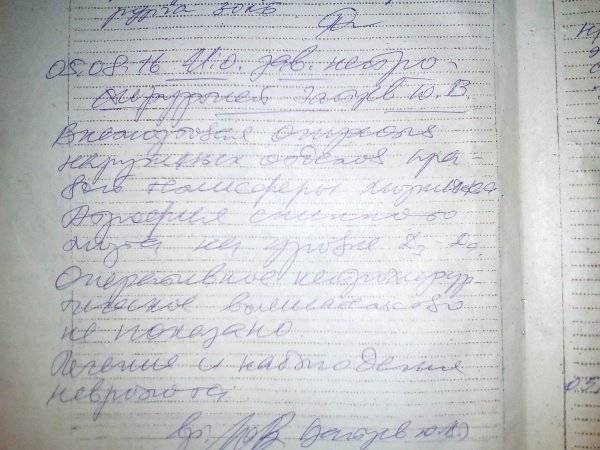 05.08.16 И.о. зав. нейро-
хирургией Зайцев Ю.В.
Внемозговая опухоль
наружных отделов пра-
вой гемисферы мозжечка
Атрофия спинного
мозга на уровне
Оперативное нейрохирур-
гическое вмешательство
не показано
Лечение и наблюдение
невролога
вр. Зайцев Ю.В.